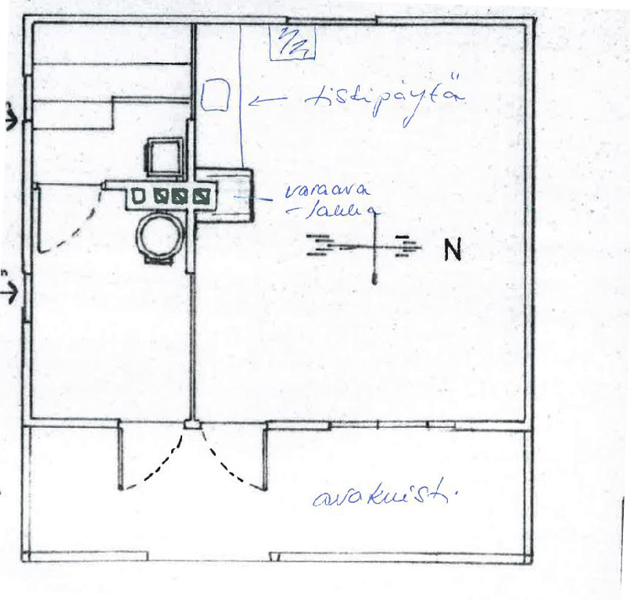 tiskipöytä
varaava
-takka
N
avokuisti.